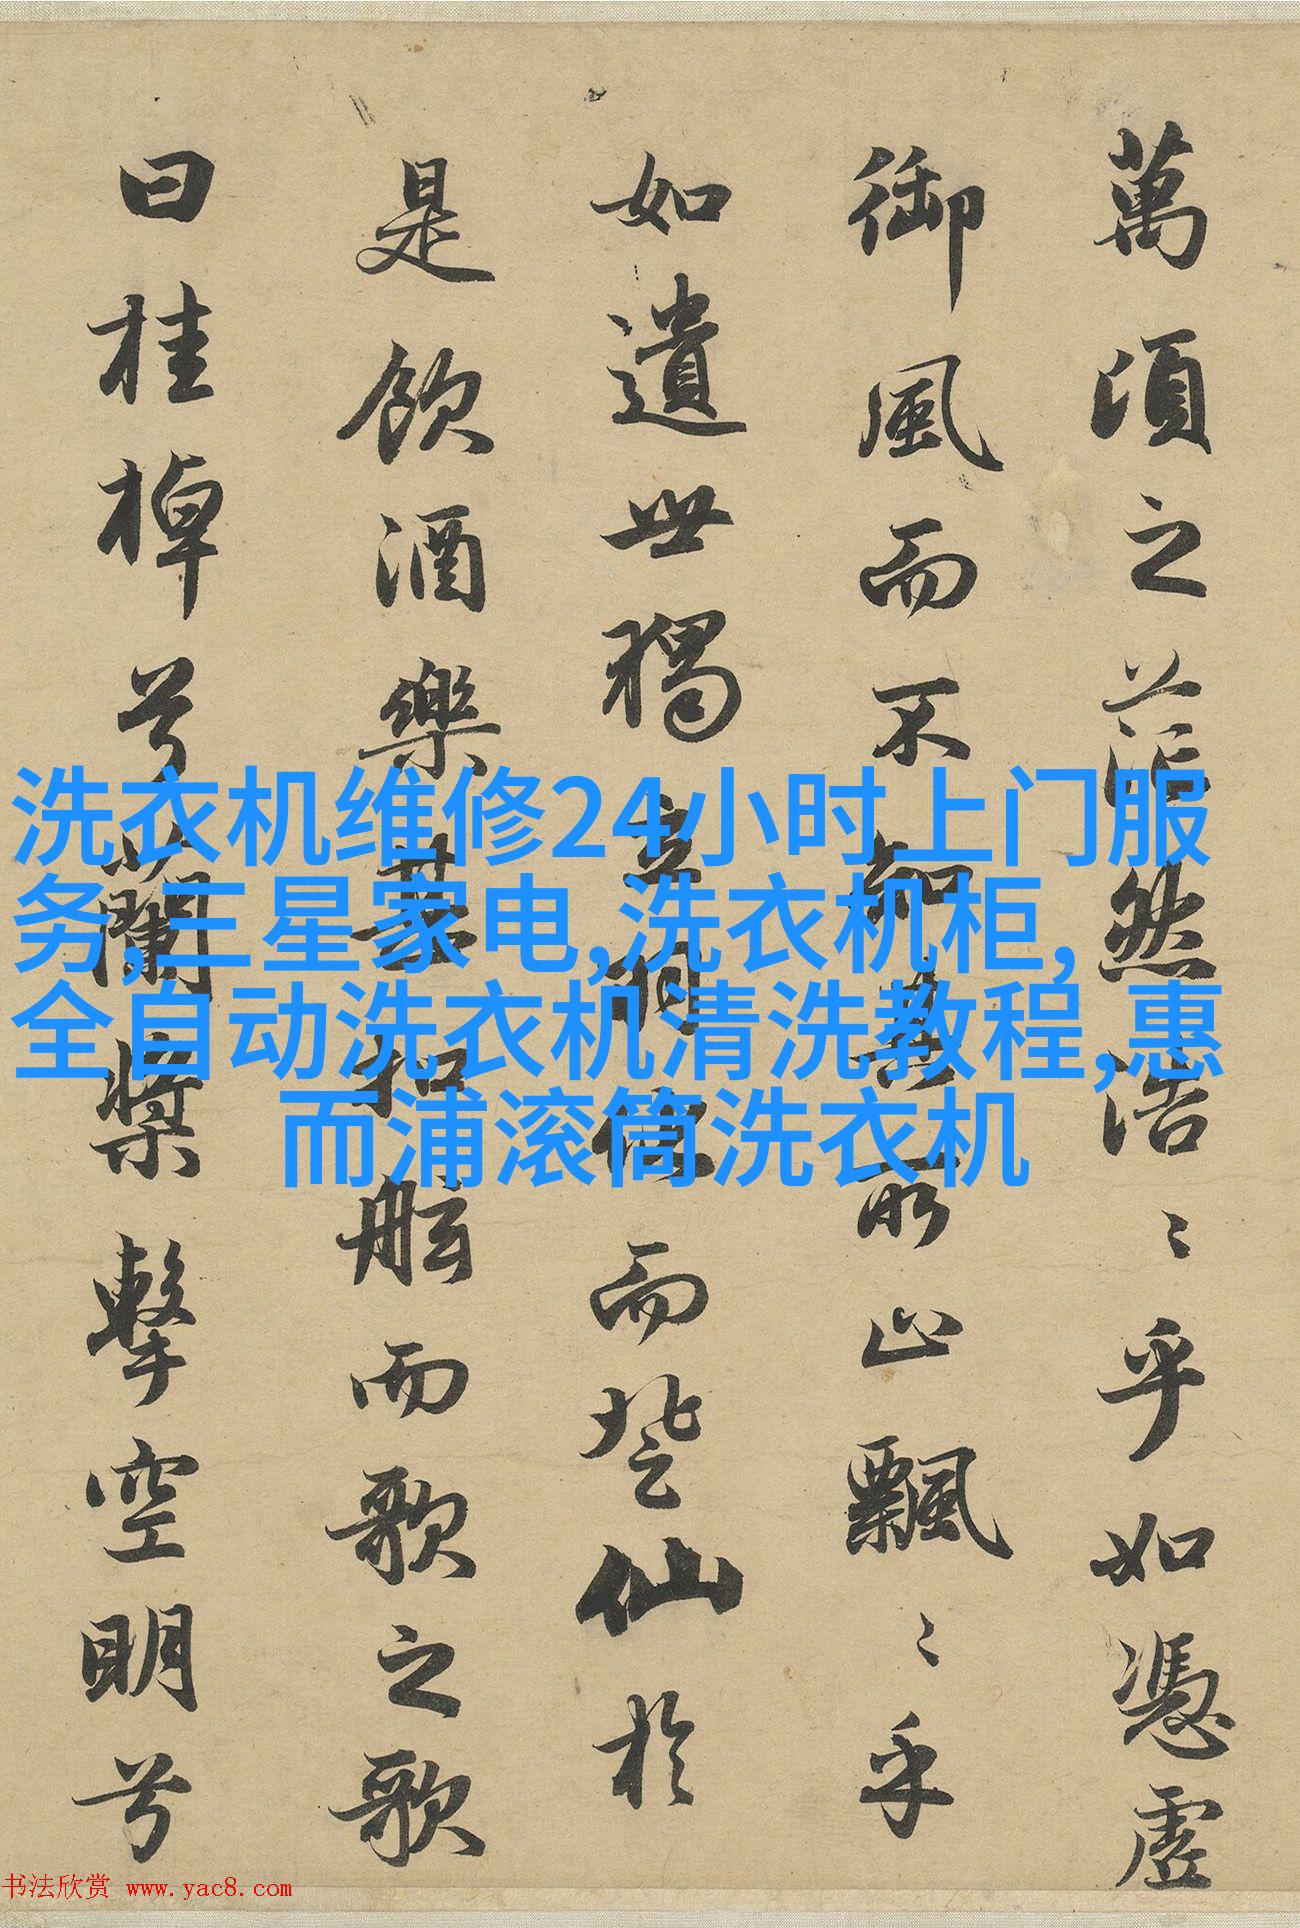 萬頃之茫然浩〻乎如憑虛
御風而不知其所止飄〻乎
如遺世獨立羽化而登仙於
是飲酒樂甚扣舷而歌之歌
曰桂棹兮蘭槳擊空明兮
洗衣机维修24小时上门服
务,三星家电,洗衣机柜,
全自动洗衣机清洗教程,惠
而浦滚筒洗衣机
书法欣赏 www.yac8.com